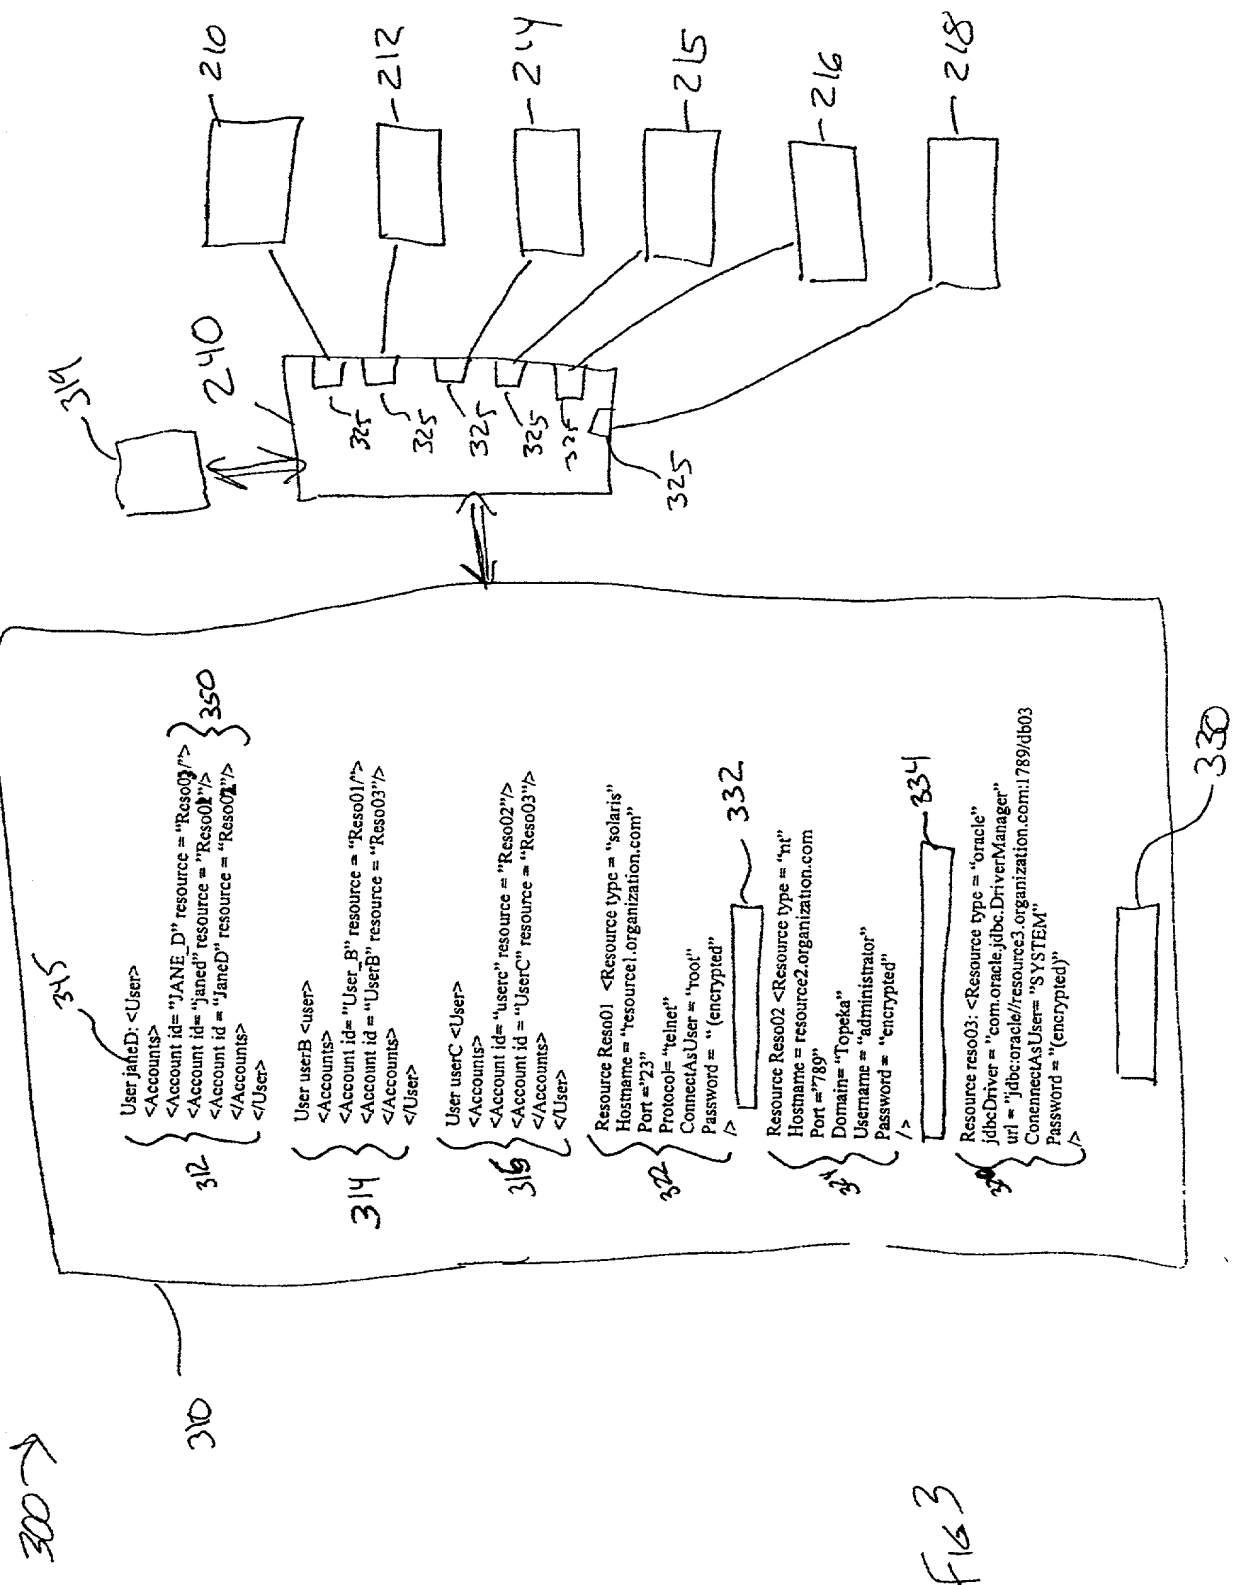 300
310
345
User janeD: <User>
<Accounts>
<Account id= "JANE_D" resource = "Reso03/">
<Account id= "janed" resource = "Reso01"/>
<Account id = "JaneD" resource = "Reso02"/>
</Accounts>
</User>
312
350
User userB <user>
<Accounts>
<Account id= "User_B" resource = "Reso01/">
<Account id = "UserB" resource = "Reso03"/>
</Accounts>
</User>
314
User userC <User>
<Accounts>
<Account id= "userc" resource = "Reso02"/>
<Account id = "UserC" resource = "Reso03"/>
</Accounts>
</User>
316
Resource Reso01 <Resource type = "solaris"
Hostname = "resource1.organization.com"
Port ="23"
Protocol= "telnet"
ConnectAsUser = "root"
Password = " (encrypted"
/>
322
332
Resource Reso02 <Resource type = "nt"
Hostname = resource2.organization.com
Port ="789"
Domain= "Topeka"
Username = "administrator"
Password = "encrypted"
/>
324
334
Resource reso03: <Resource type = "oracle"
jdbcDriver = "com.oracle.jdbc.DriverManager"
url = "jdbc:oracle//resource3.organization.com:1789/db03
ConennectAsUser= "SYSTEM"
Password = "(encrypted)"
/>
330
319
240
325
325
325
325
325
325
210
212
214
215
216
218
FIG 3